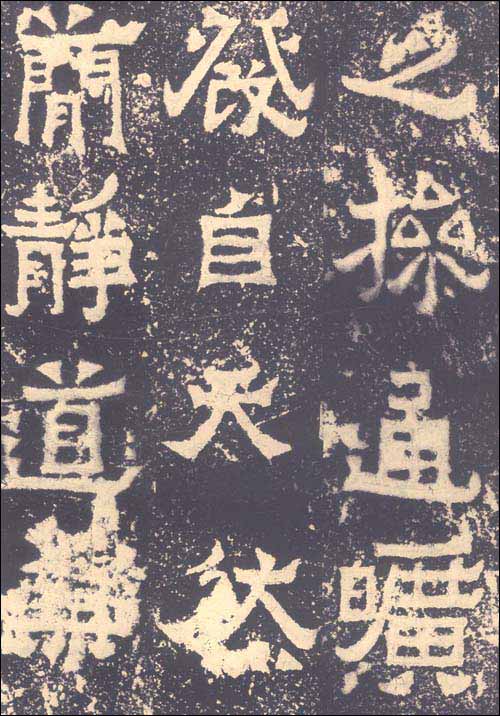 之操通曠
發自天然
簡靜道